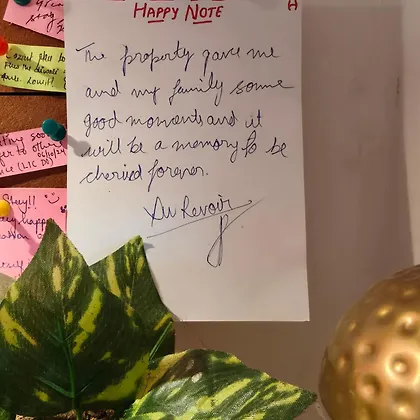 HAPPY NOTE
The property gave me
and my family some
good moments and it
will be a memory to be
cherised forever.
Au Revoir
stay
(LTC DS)
06/10/24
Stay!!